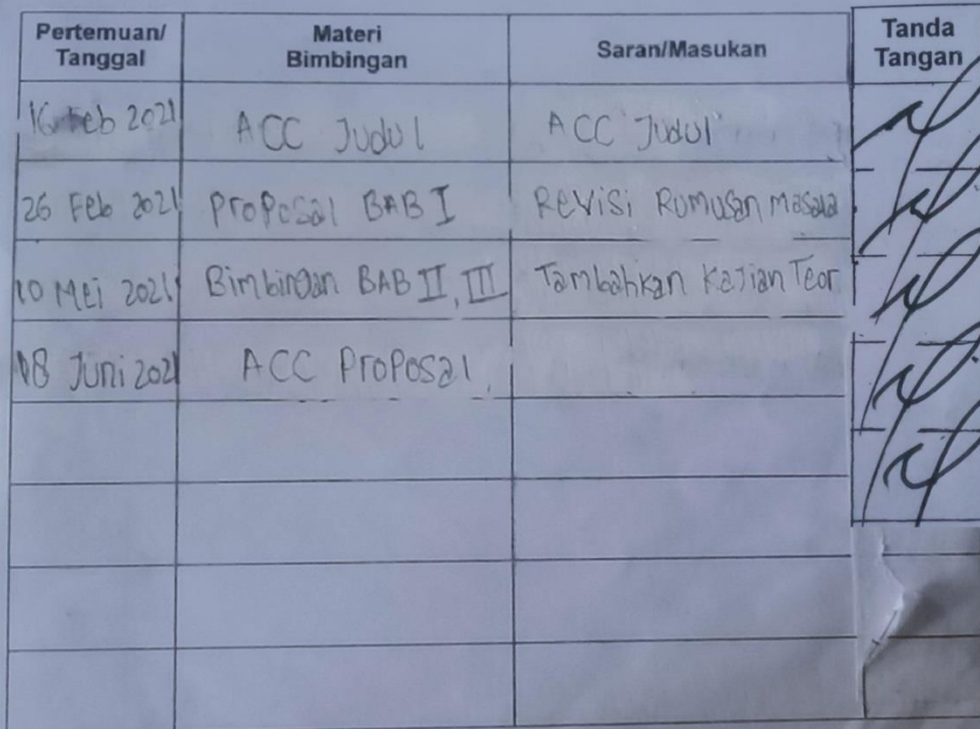 Pertemuan/
Tanggal
Materi
Bimbingan
Saran/Masukan
Tanda
Tangan
16 Feb 2021
ACC Judul
ACC Judul
26 Feb 2021
Proposal BAB I
Revisi Rumusan masala
10 Mei 2021
Bimbingan BAB II, III
Tambahkan Kajian Teor
08 Juni 2021
ACC Proposal